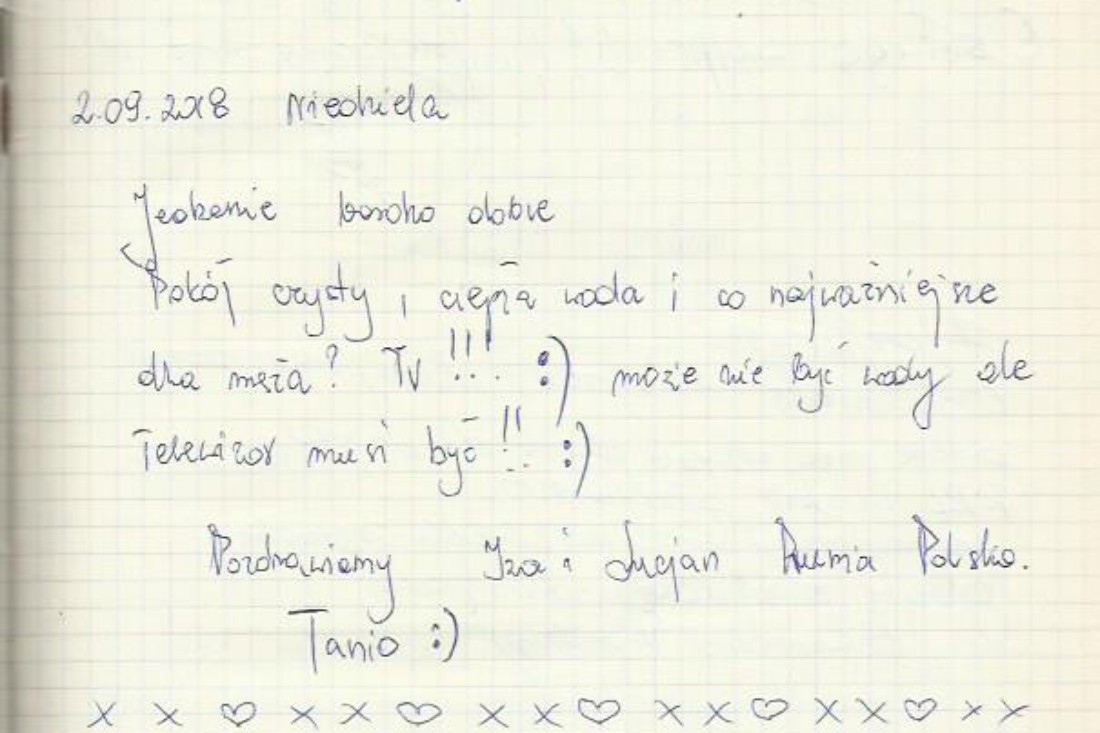 2.09.2018 Niedziela
Jedzenie bardzo dobre
Pokój czysty, ciepła woda i co najważniejsze
dla męża? TV !!! :) może nie być wody ale
Telewizor musi być !!! :)
Pozdrawiamy Iza i Lucjan Rumia Polska.
Tanio :)
x x ♡ x x ♡ x x ♡ x x ♡ x x ♡ x x